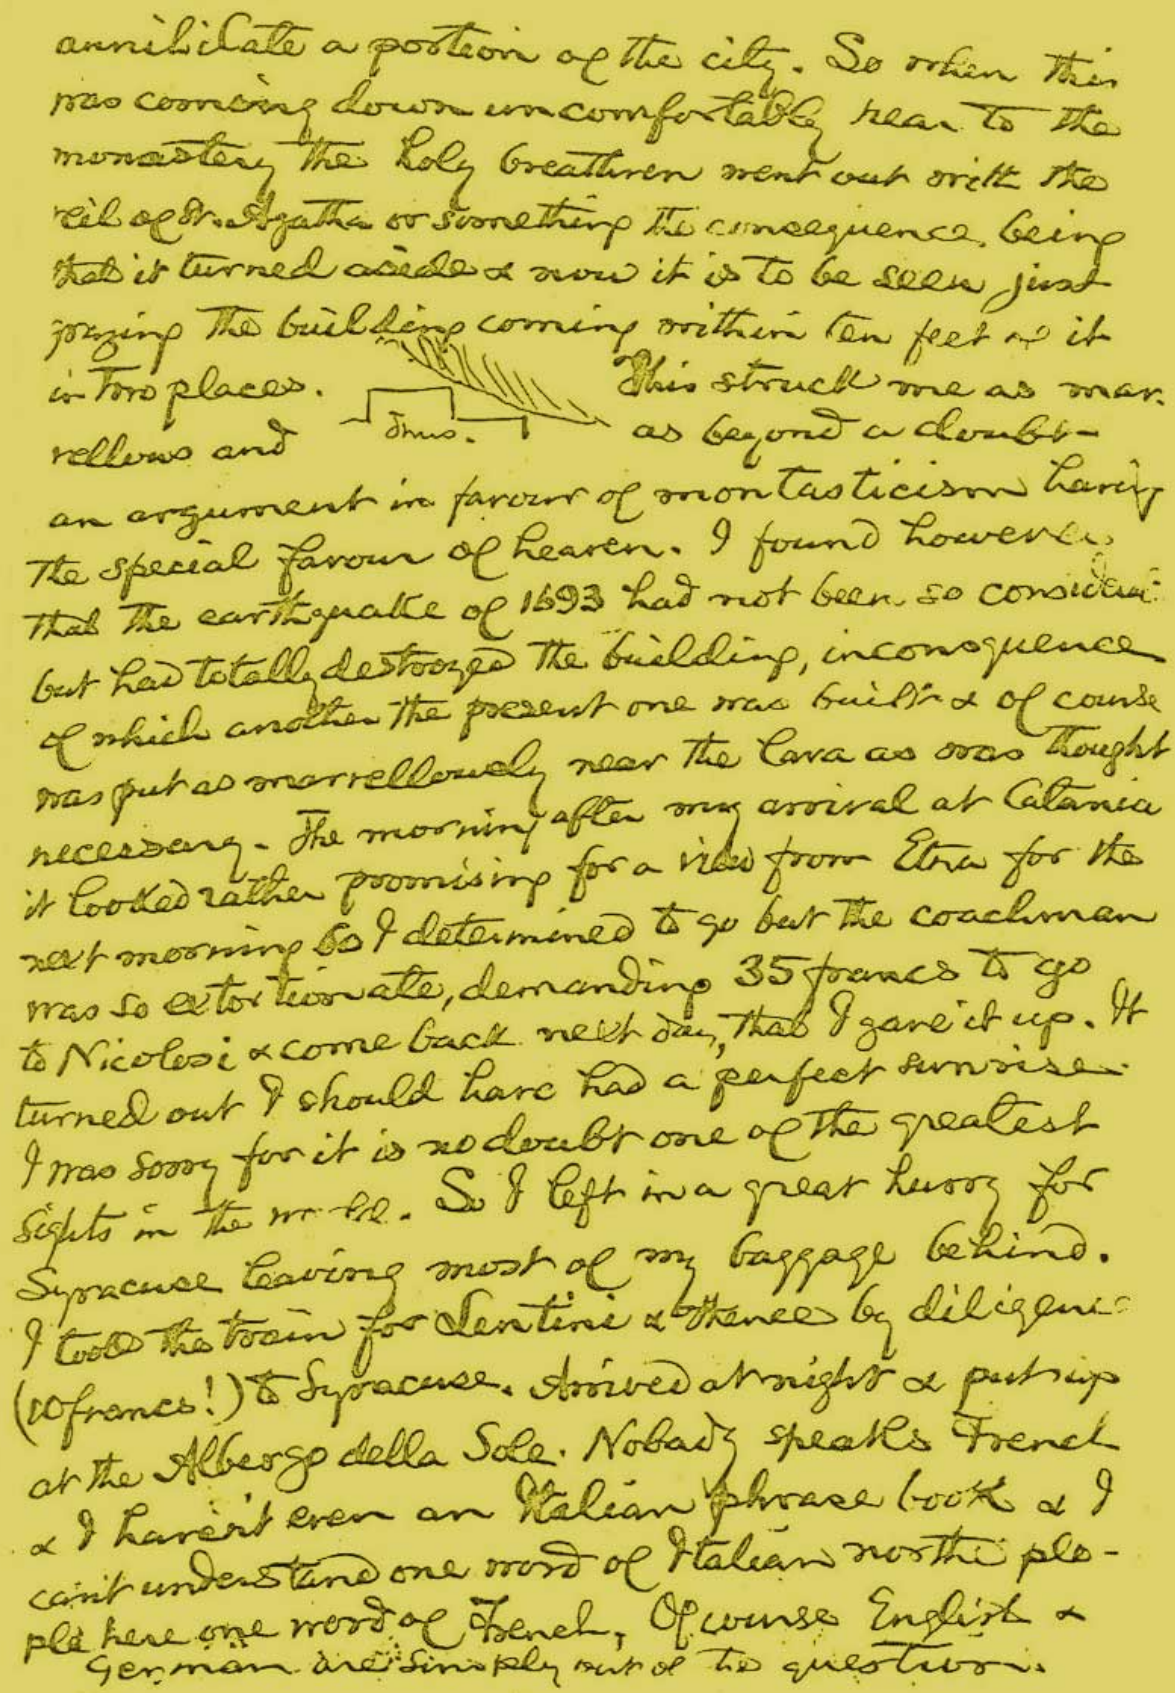 annihilate a portion of the city. So when this
was coming down uncomfortably near to the
monastery the holy breathren went out with the
veil of St. Agatha or something the consequence being
that it turned aside & now it is to be seen just
grazing the building coming within ten feet of it
in two places. This struck me as mar-
thus.
vellous and as beyond a doubt
an argument in favour of montasticism having
the special favour of heaven. I found however
that the earthquake of 1693 had not been so considerate
but had totally destroyed the building, in consquence
of which another the present one was built & of course
was put as marvellously near the lava as was thought
necessary. The morning after my arrival at Catania
it looked rather promising for a view from Etna for the
next morning so I determined to go but the coachman
was so extortionate, demanding 35 francs to go
to Nicolosi & come back next day, that I gave it up. It
turned out I should have had a perfect sunrise.
I was sorry for it is no doubt one of the greatest
sights in the world. So I left in a great hurry for
Syracuse leaving most of my baggage behind.
I took the train for Lentini & thence by diligence
(10 francs!) to Syracuse. Arrived at night & put up
at the Albergo della Sole. Nobady speaks French
& I haven't even an Italian phrase book & I
can't understand one word of Italian nor the peo-
ple here one word of French, Of course English &
German are simply out of the question.